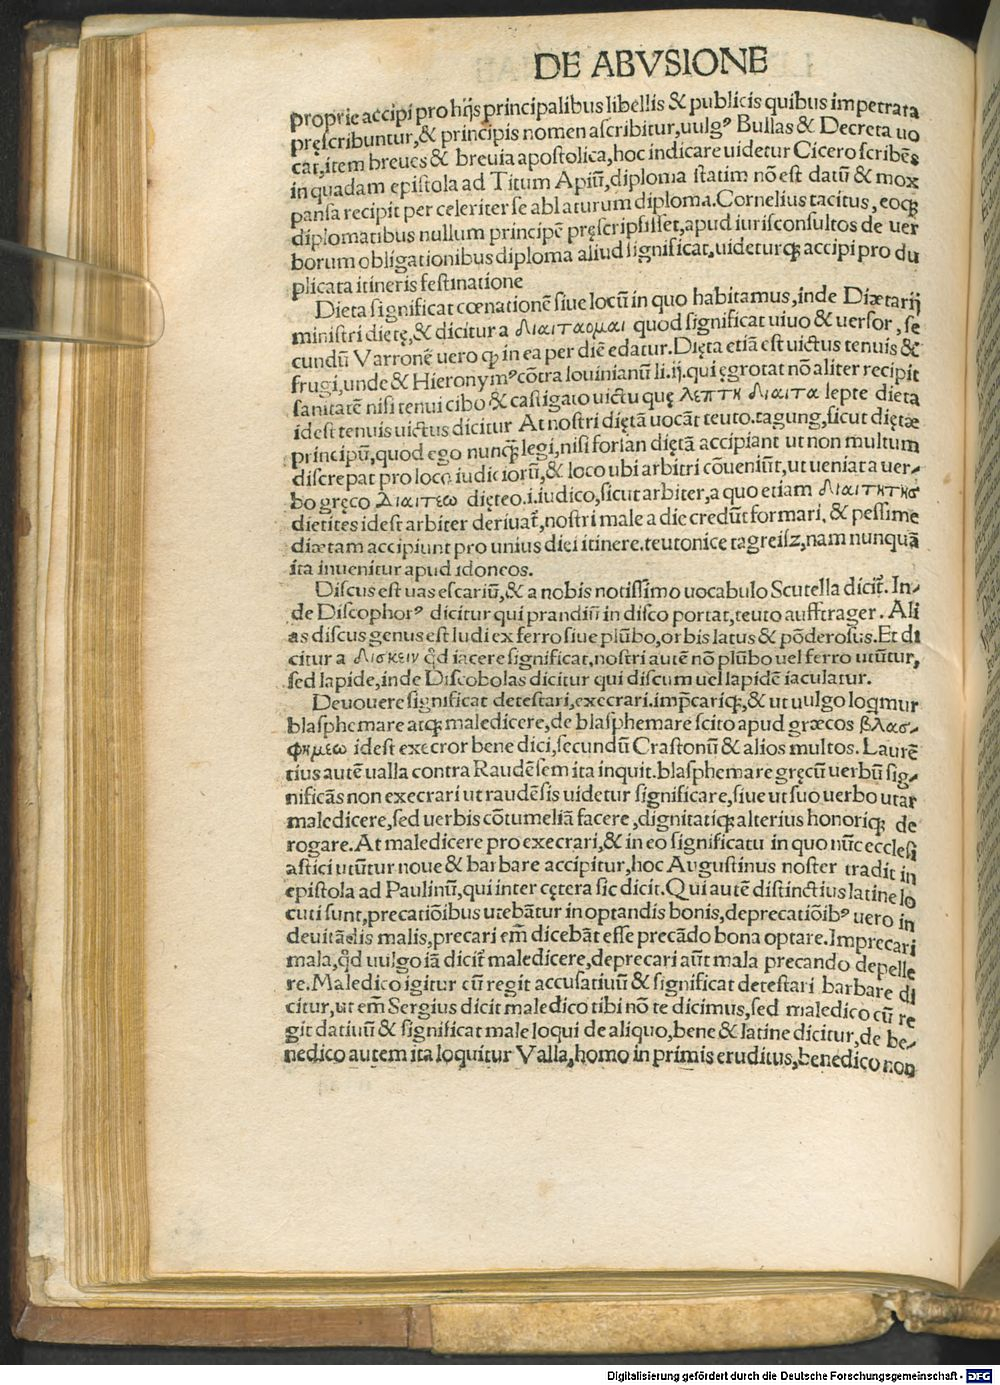 DE ABVSIONE
proprie accipi pro hijs principalibus libellis & publicis quibus impetrata
pręſcribuntur,& principis nomen aſcribitur,uulgꝰ Bullas & Decreta uo
cat,item breues & breuia apoſtolica,hoc indicare uidetur Cicero ſcribēs
in quadam epiſtola ad Titum Apiū,diploma ſtatim nō eſt datū & mox
panſa recipit per celeriter ſe ablaturum diploma.Cornelius tacitus, eoqꝫ
diplomatibus nullum principē pręſcripſiſſet,apud iuriſconſultos de uer
borum obligationibus diploma aliud ſignificat,uideturqꝫ accipi pro du
plicata itineris feſtinatione
Dieta ſignificat cœnationē ſiue locū in quo habitamus,inde Diætarij
miniſtri dietę,& dicitur a διαιταομαι quod ſignificat uiuo & uerſor, ſe
cundū Varronē uero ꝙ in ea per diē edatur.Dięta etiā eſt uictus tenuis &
frugi,unde & Hieronymꝰ cōtra Iouinianū li.ij.qui ęgrotat nō aliter recipit
ſanitatē niſi tenui cibo & caſtigato uictu quę λεπτη διαιτα lepte dieta
ideſt tenuis uictus dicitur At noſtri diętā uocāt teuto.tagung,ſicut diętæ
principū,quod ego nunqꝫ legi,niſi forſan diętā accipiant ut non multum
diſcrepat pro loco iudiciorū,& loco ubi arbitri cōueniūt,ut ueniat a uer⸗
bo gręco διαιτεω dięteo.i.iudico,ſicut arbiter,a quo etiam διαιτητησ
dietites ideſt arbiter deriuat̄,noſtri male a die credūt formari, & peſſime
diætam accipiunt pro unius diei itinere.teutonice tagreiſz,nam nunquā
ita inuenitur apud idoneos.
Diſcus eſt uas eſcariū,& a nobis notiſſimo uocabulo Scutella dicit̄. In⸗
de Diſcophorꝰ dicitur qui prandiū in diſco portat,teuto aufftrager. Ali
as diſcus genus eſt ludi ex ferro ſiue plūbo,orbis latus & pōderoſus.Et di
citur a δισκειν qd̄ iacere ſignificat,noſtri autē nō plūbo uel ferro utūtur,
ſed lapide,inde Diſcobolas dicitur qui diſcum uel lapidē iaculatur.
Deuouere ſignificat deteſtari,execrari.imp̄cariqꝫ,& ut uulgo loqmur
blaſphemare atqꝫ maledicere,de blaſphemare ſcito apud græcos βλασ⸗
φημεω ideſt execror bene dici,ſecundū Craſtonū & alios multos. Laurē
tius autē ualla contra Raudēſem ita inquit.blaſphemare gręcū uerbū ſig⸗
nificās non execrari ut raudēſis uidetur ſignificare,ſiue ut ſuo uerbo utar
maledicere,ſed uerbis cōtumeliā facere,dignitatiqꝫ alterius honoriqꝫ de
rogare.At maledicere pro execrari,& in eo ſignificatu in quo nūc eccleſi
aſtici utūtur noue & barbare accipitur,hoc Auguſtinus noſter tradit in
epiſtola ad Paulinū,qui inter cętera ſic dicit.Qui autē diſtinctius latine lo
cuti ſunt,precatiōibus utebātur in optandis bonis,deprecatiōibꝰ uero in
deuitādis malis,precari em̄ dicebāt eſſe precādo bona optare.Imprecari
mala,qd̄ uulgo iā dicit̄ maledicere,deprecari aūt mala precando depelle
re.Maledico igitur cū regit accuſatiuū & ſignificat deteſtari barbare di
citur,ut em̄ Sergius dicit maledico tibi nō te dicimus,ſed maledico cū re
git datiuū & ſignificat male loqui de aliquo,bene & latine dicitur,de be⸗
nedico autem ita loquitur Valla,homo in primis eruditus,benedico non
Digitalisierung gefördert durch die Deutsche Forschungsgemeinschaft - DFG